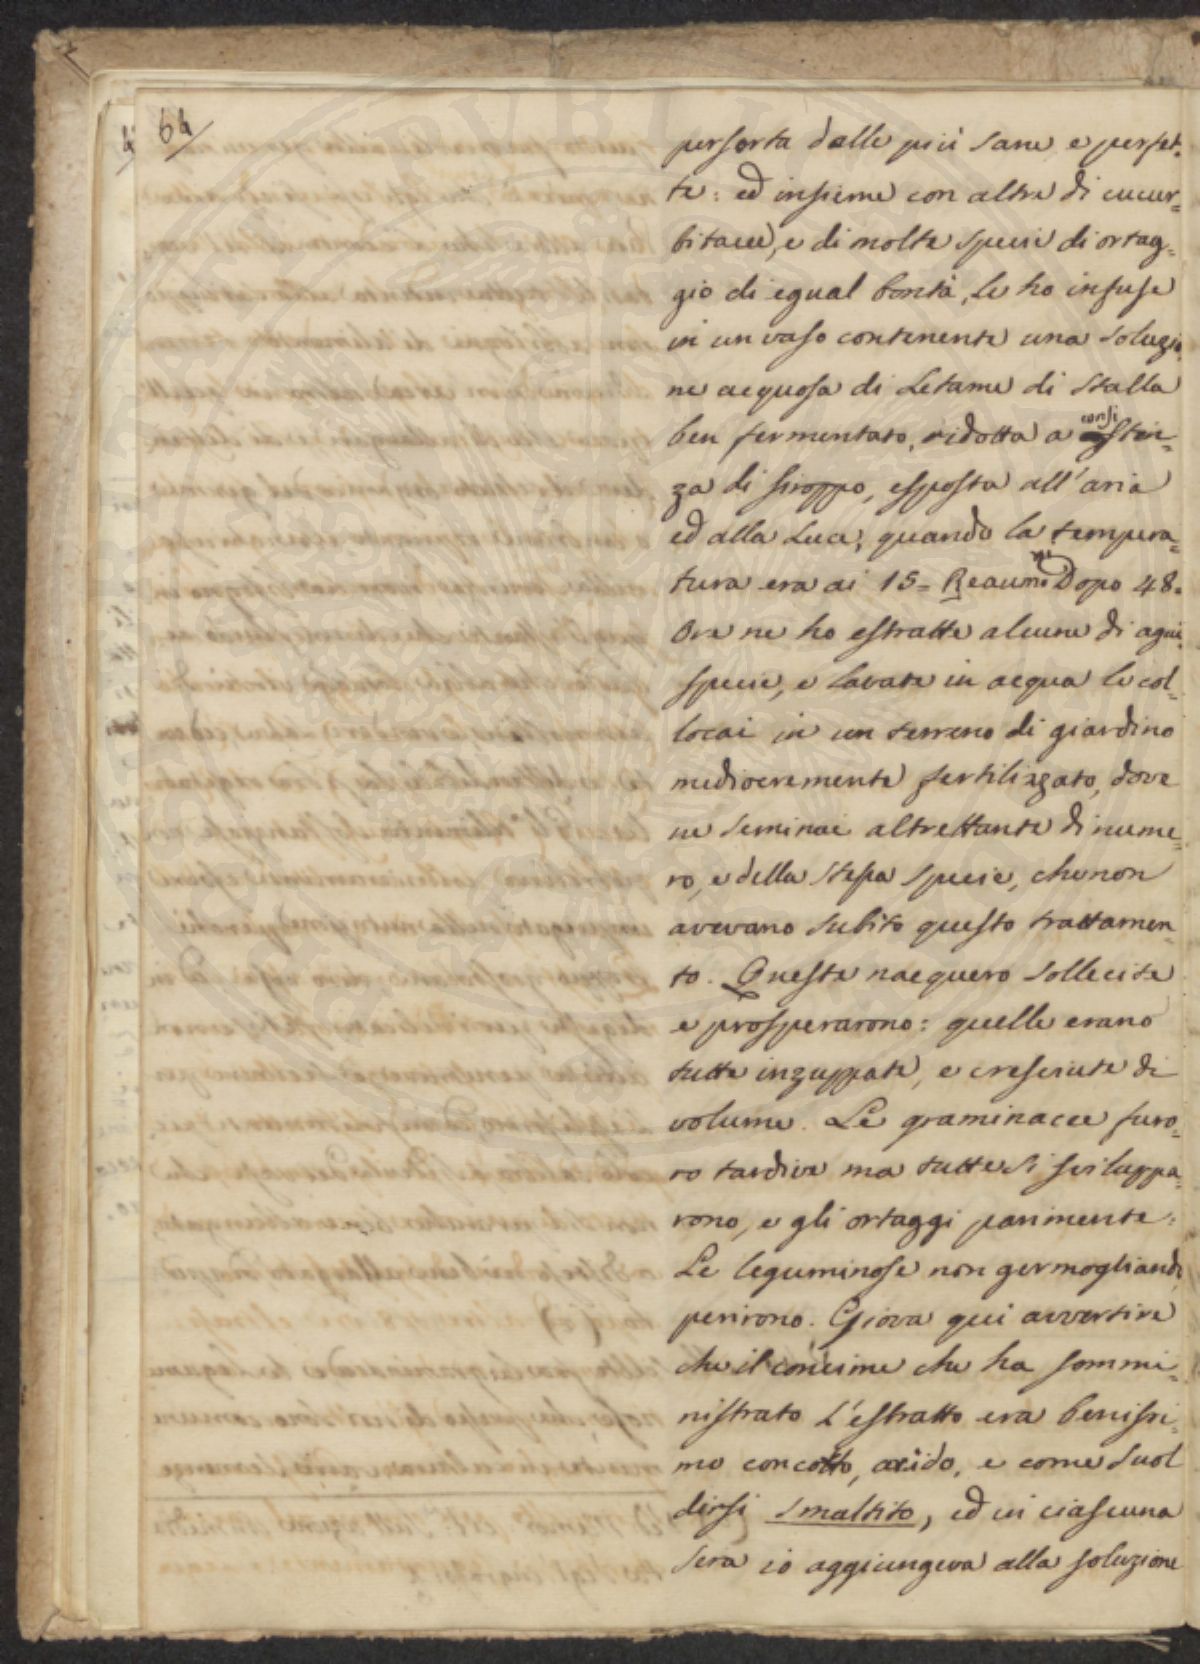 64
per sorta delle più sane e perfet-
te: ed insieme con altre di cucur-
bitacee, e di molte specie di ortag-
gio di egual bontà, le ho infuse
in un vaso contenente una soluzio
ne acquosa di Letame di stalla
ben fermentato, ridotta a consisten-
za di siroppo, esposta all'aria
ed alla Luce, quando la tempera-
tura era ai 15= Reaumu Dopo 48.
Ore ne ho estratte alcune di ogni
specie, e lavate in acqua le col-
locai in un terreno di giardino
mediocremente fertilizzato, dove
ne seminai altrettante di nume-
ro, e della stessa specie, che non
avevano subito questo trattamen
to. Queste nacquero sollecite
e prosperarono: quelle erano
tutte inzuppate, e cresciute di
volume. Le graminacee furo-
ro tardive ma tutte si sviluppa-
rono, e gli ortaggi parimente:
Le leguminose non germogliando
perirono. Giova qui avvertire
che il concime che ha sommi-
nistrato L'estratto era benissi-
mo concotto, acido, e come suol
dirsi smaltito, ed in ciascuna
sera io aggiungeva alla soluzione